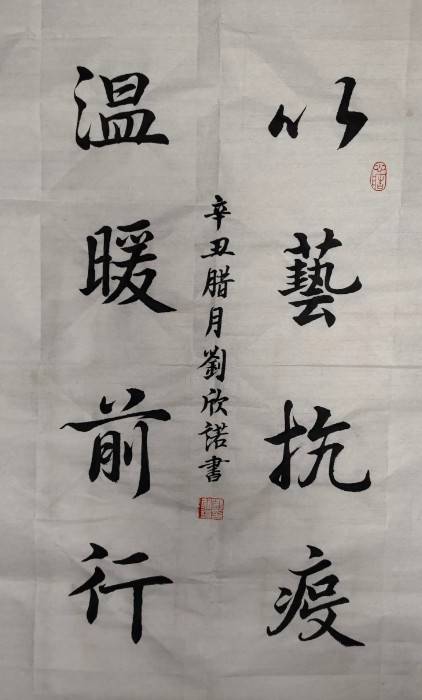 以藝抗疫
溫暖前行
辛丑腊月劉欣諾書